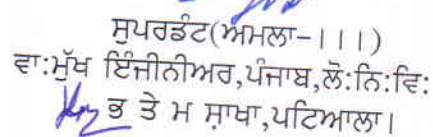 ਸੁਪਰਡੰਟ(ਅਮਲਾ-।।।)
ਵਾ:ਮੁੱਖ ਇੰਜੀਨੀਅਰ,ਪੰਜਾਬ,ਲੋ:ਨਿ:ਵਿ:
ਭ ਤੇ ਮ ਸ਼ਾਖਾ,ਪਟਿਆਲਾ।